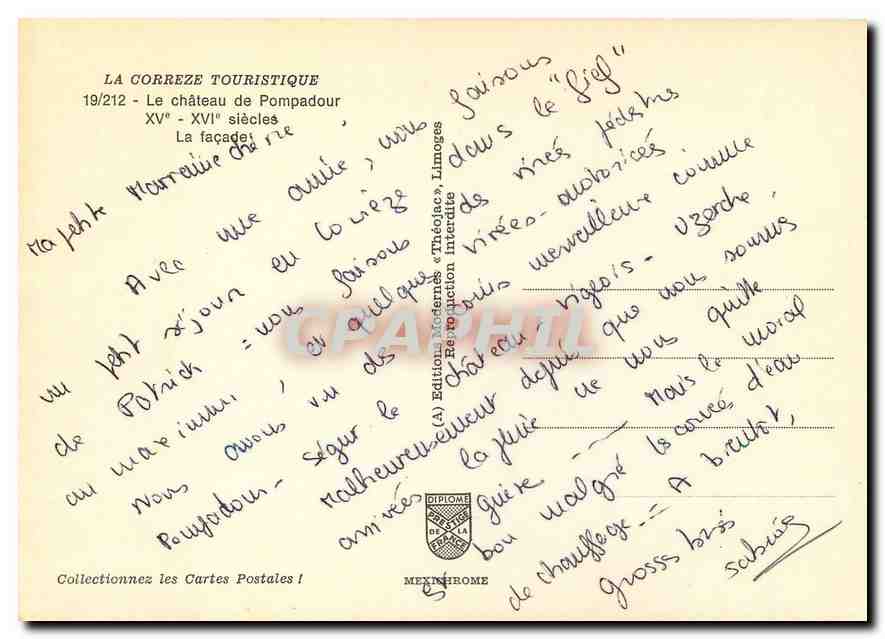 LA CORREZE TOURISTIQUE
19/212 - Le château de Pompadour
XVe - XVIe siècles
La façade
Ma petite Marraine cherie,
Avec une amie, nous faisons
un petit séjour en Corrèze dans le "fief"
de Patrick : nous faisons de virées pédestres
au maximum, et quelques virées motorisées.
Nous avons vu des coins merveilleux comme
Pompadour - Ségur le château - Vigeois - Uzerche.
Malheureusement depuis que nous sommes
arrivées la pluie ne nous quitte
guère -- Mais le moral
est bon malgré les corvées d'eau
de chauffage -- A bientôt,
grosses bises
(A) Editions Modernes «Théojac», Limoges
Reproduction interdite
CPAPHIL
DIPLOME
PRESTIGE
DE LA
FRANCE
Collectionnez les Cartes Postales !
MEXICHROME